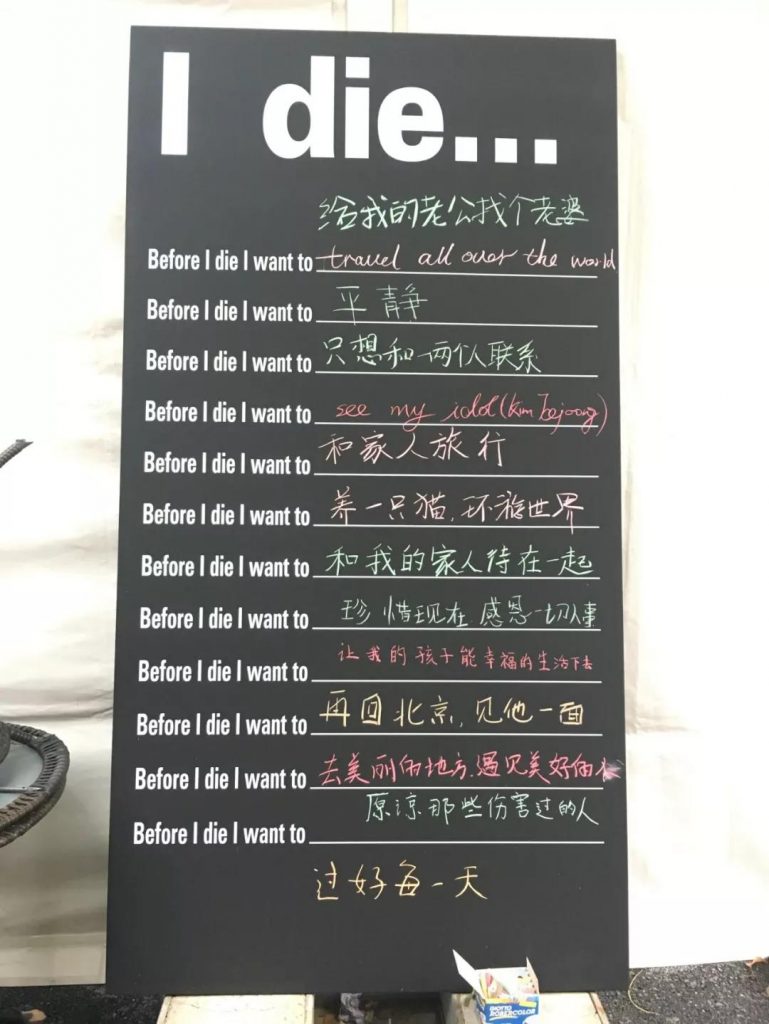 I die...
给我的老公找个老婆
Before I die I want to travel all over the world
Before I die I want to 平静
Before I die I want to 只想和一两个人联系
Before I die I want to see my idol (Kim Jaejoong)
Before I die I want to 和家人旅行
Before I die I want to 养一只猫,环游世界
Before I die I want to 和我的家人待在一起
Before I die I want to 珍惜现在 感恩一切人事
Before I die I want to 让我的孩子能幸福的生活下去
Before I die I want to 再回北京,见他一面
Before I die I want to 去美丽的地方.遇见美好的人
原谅那些伤害过的人
Before I die I want to
过好每一天
GIOTTO
ROBERCOLOR